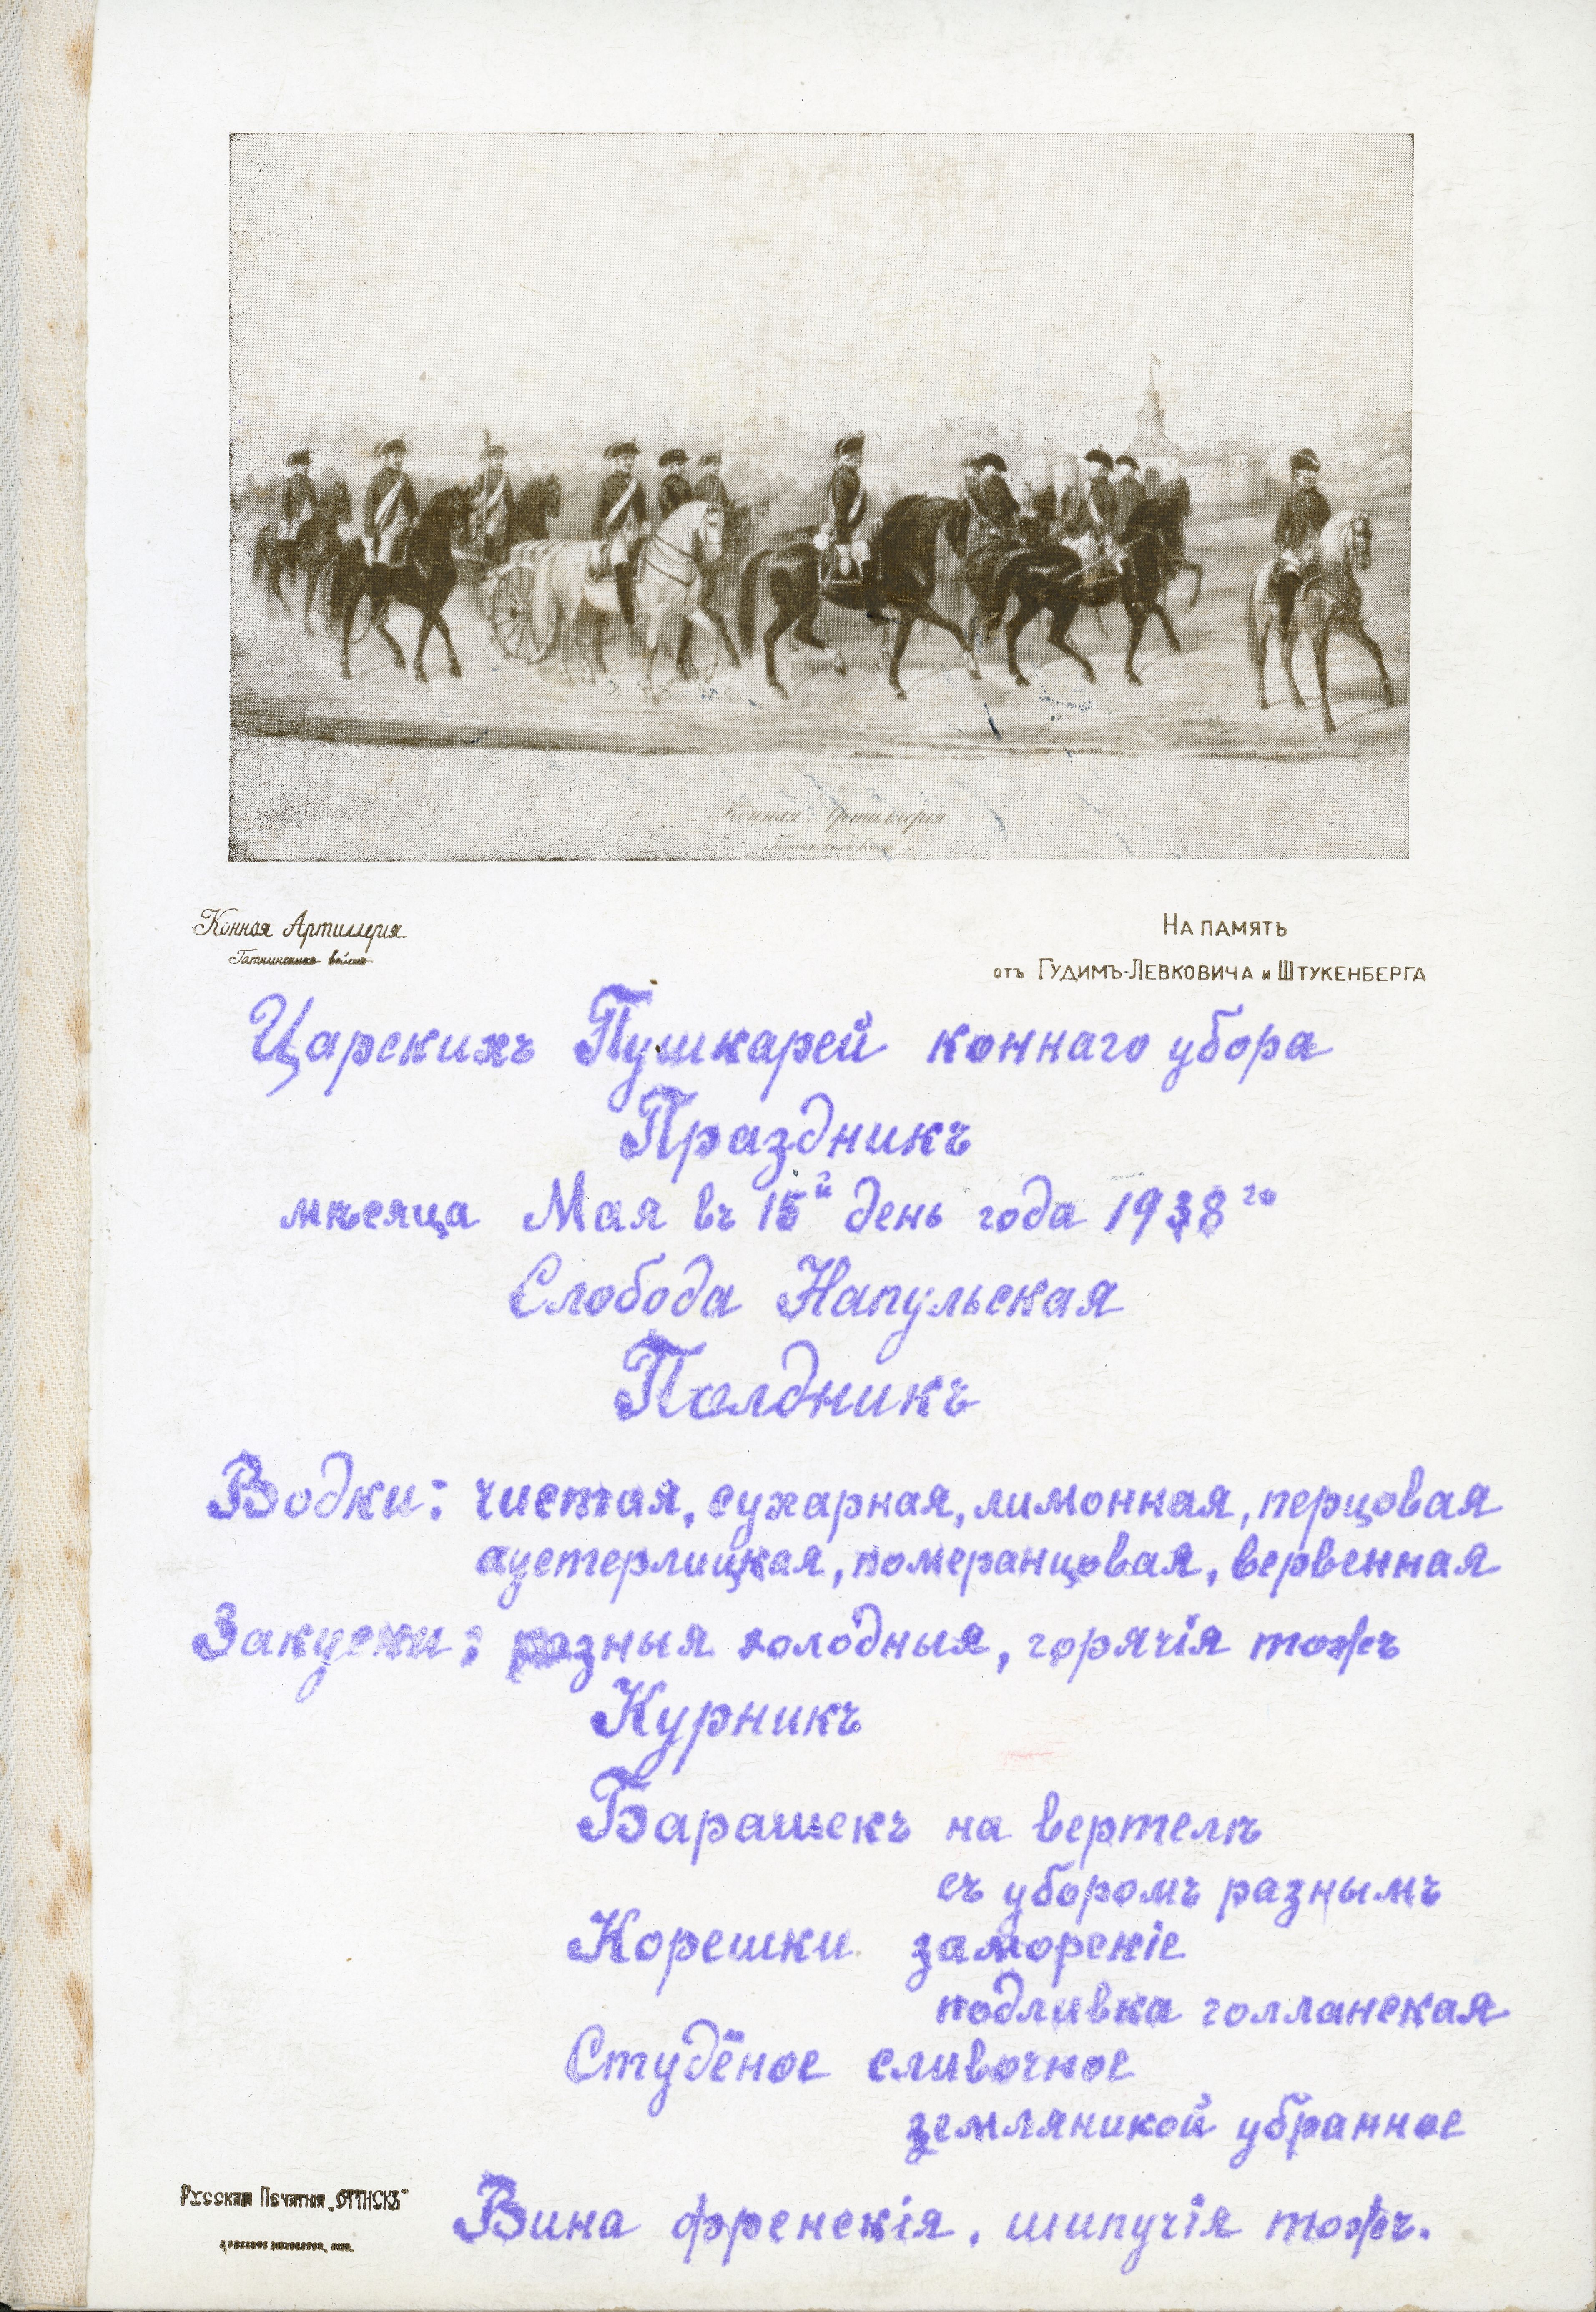 Конная Артиллерія
Конная Артиллерія
Гатчинскихъ войскъ
На память
отъ Гудимъ-Левковича и Штукенберга
Царскихъ Пушкарей коннаго убора
Праздникъ
мѣсяца Мая въ 15й день года 1938го
Слобода Напульская
Полдникъ
Водки: чистая, сухарная, лимонная, перцовая
аустерлицкая, померанцовая, вервенная
Закуски: разныя холодныя, горячія тожъ
Курникъ
Барашекъ на вертелѣ
съ уборомъ разнымъ
Корешки заморскіе
подливка голланская
Студёное сливочное
земляникой убранное
Русская Печатня „ОТТИСКЪ"
Вина френскія, шипучія тожъ.